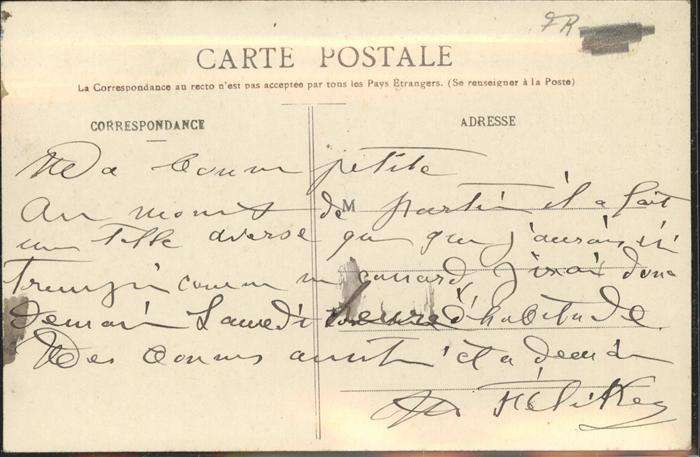 FR
CARTE POSTALE
La Correspondance au recto n'est pas acceptée par tous les Pays Étrangers. (Se renseigner à la Poste)
CORRESPONDANCE
ADRESSE
Ma bonne petite
M
Au moment de partir il a fait
une telle averse que j'aurais été
trempé comme un canard, j'irai donc
demain Samedi heure d'habitude
Mes bonnes et a demain